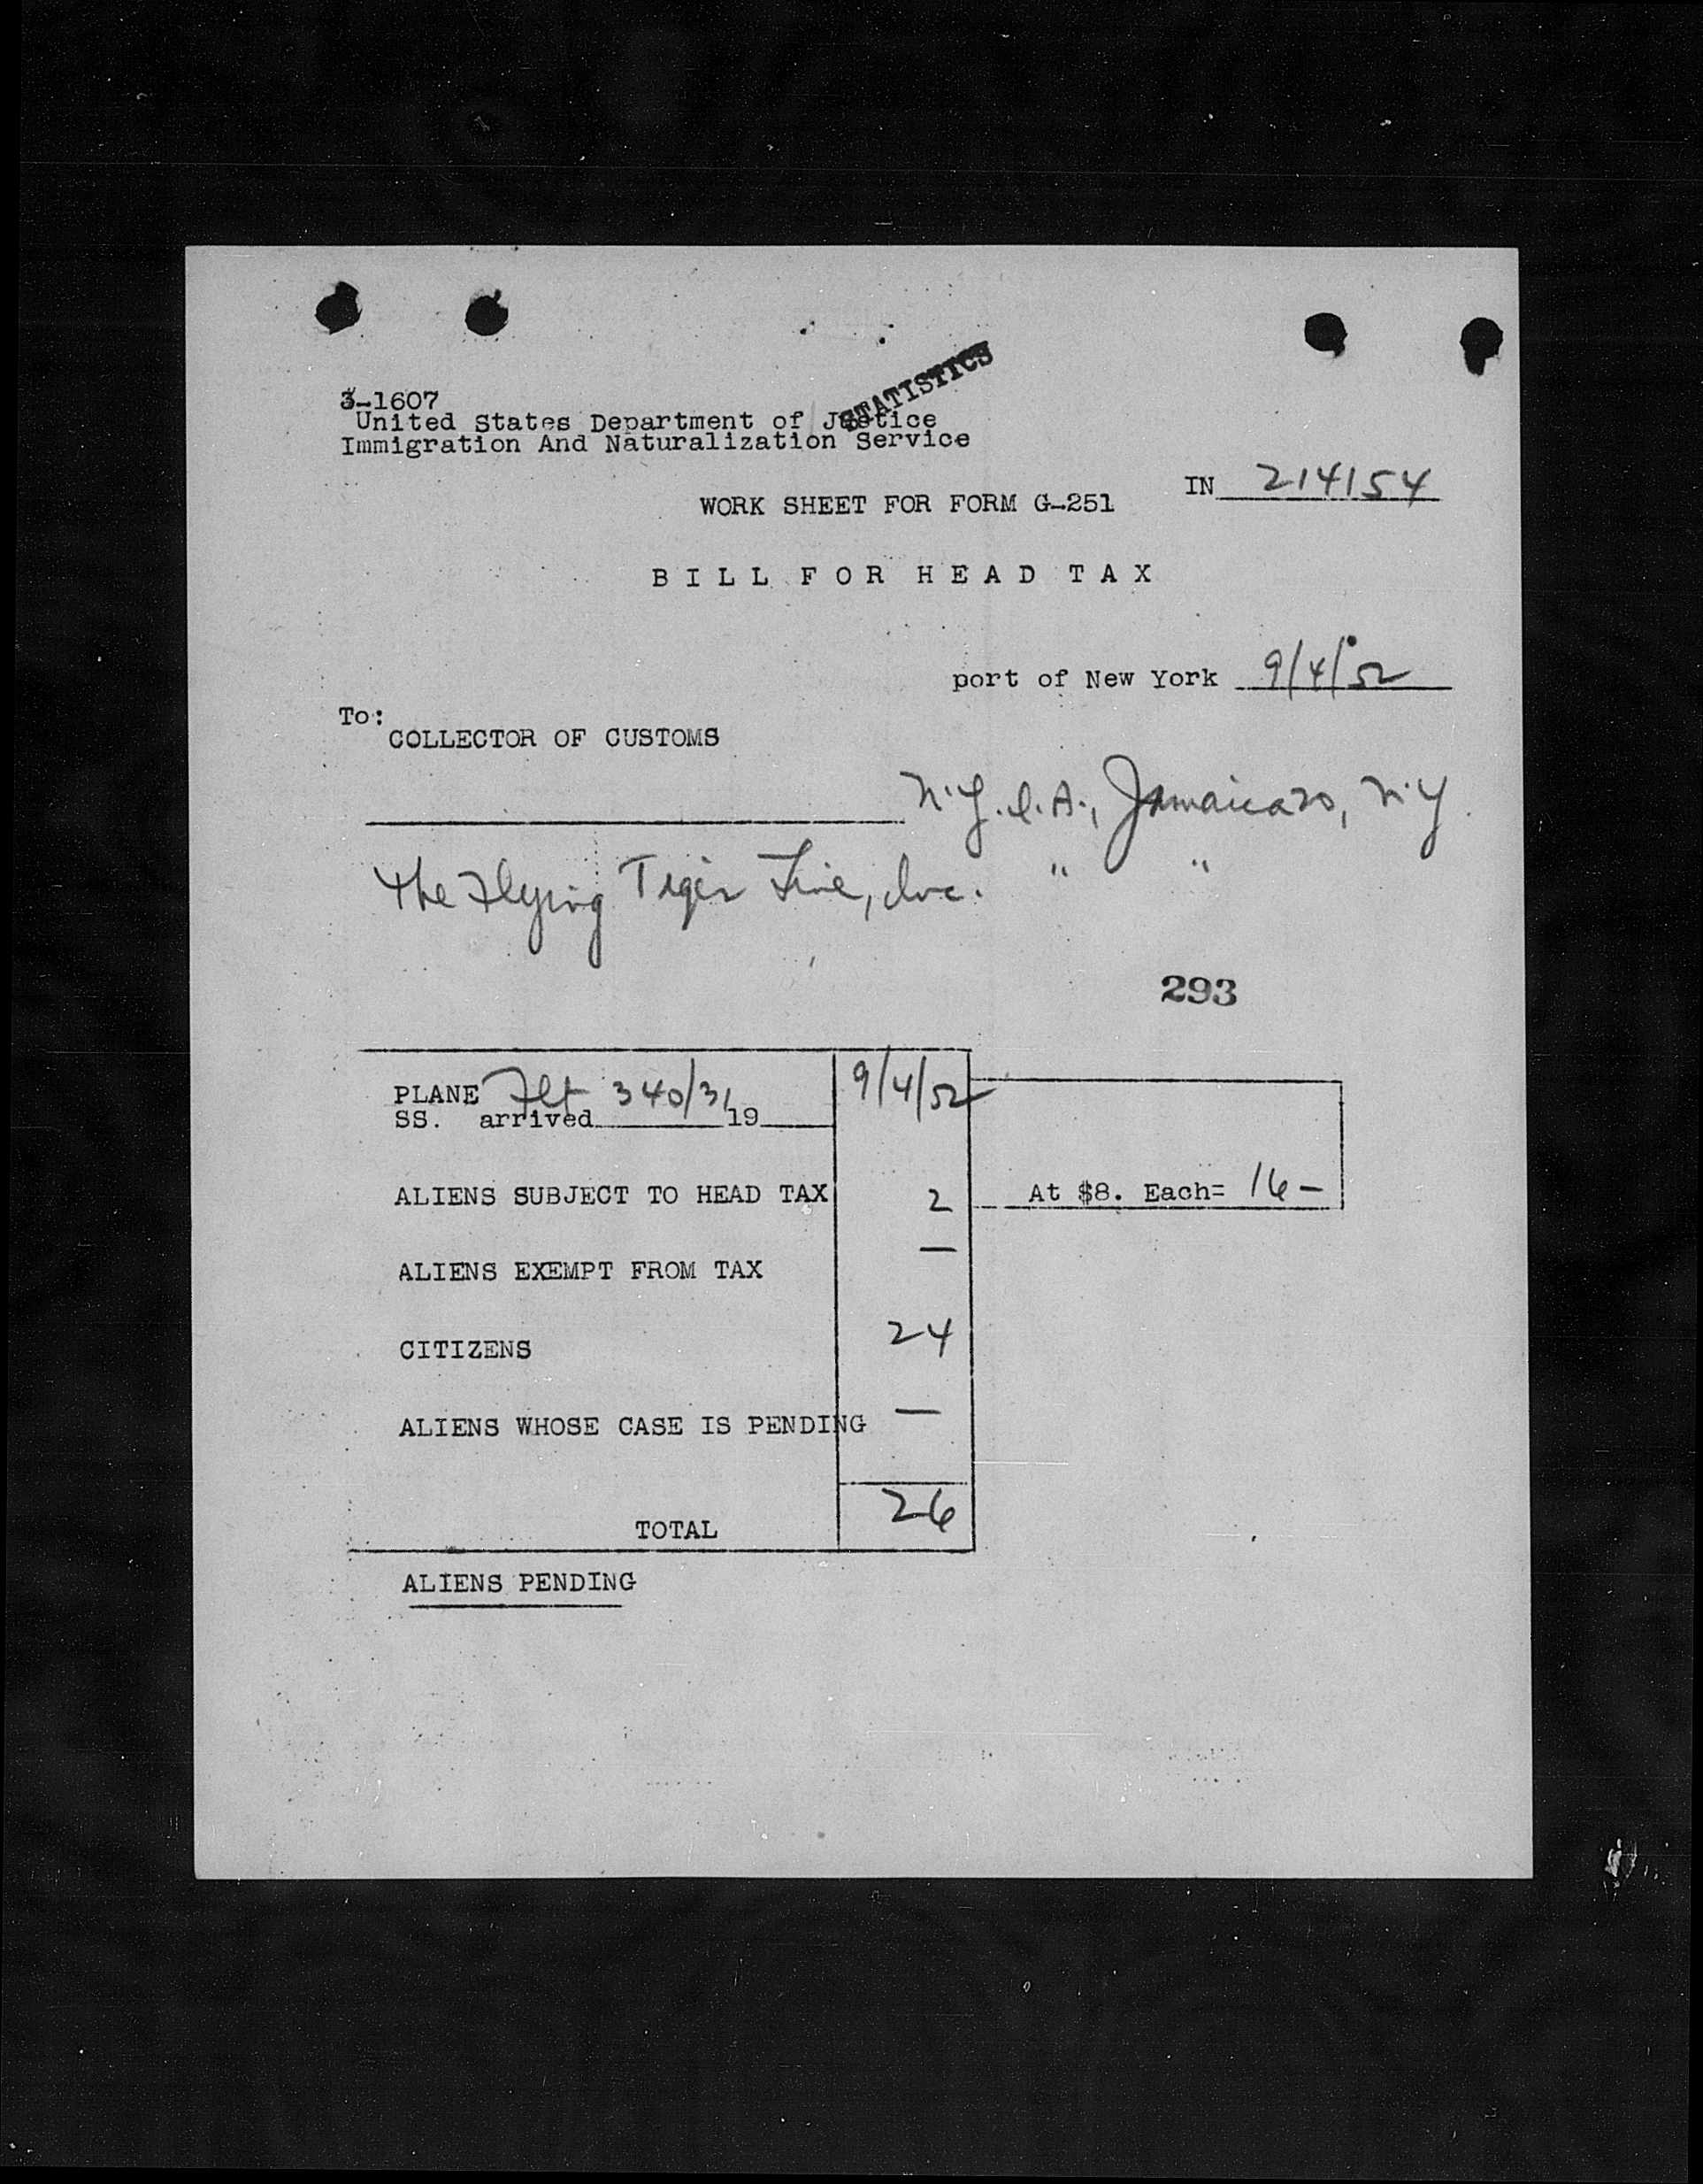 STATISTICS
3-1607
United States Department of Justice
Immigration And Naturalization Service
IN 214154
WORK SHEET FOR FORM G-251
BILL FOR HEAD TAX
port of New York 9/4/52
To:
COLLECTOR OF CUSTOMS
N.Y.I.A., Jamaica 30, N.Y.
The Flying Tiger Line, Inc. " "
293
PLANE Flt 340/31 9/4/52
SS. arrived 19
ALIENS SUBJECT TO HEAD TAX 2 At $8. Each= 16 –
ALIENS EXEMPT FROM TAX —
CITIZENS 24
ALIENS WHOSE CASE IS PENDING —
TOTAL 26
ALIENS PENDING